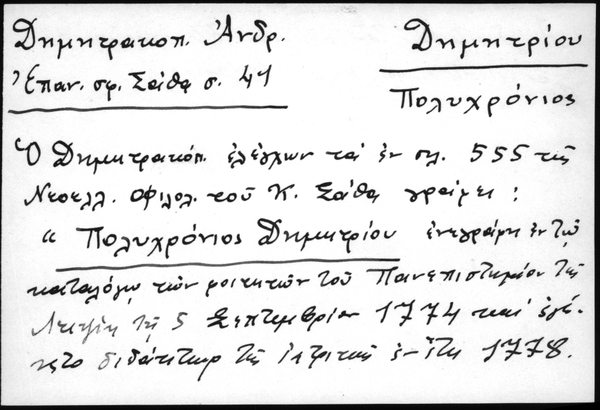 Δημητρακοπ. Ἀνδρ.
Ἐπαν. σφ. Σάθα σ. 41
Δημητρίου
Πολυχρόνιος
Ὁ Δημητρακόπ. ἐλέγχων τά ἐν σελ. 555 τῆς
Νεοελλ. Φιλολ. τοῦ Κ. Σάθα γράφει :
“ Πολυχρόνιος Δημητρίου ἐνεγράφη ἐν τῷ
καταλόγῳ τῶν φοιτητῶν τοῦ Πανεπιστημίου τῆς
Λειψίας τῇ 5 Σεπτεμβρίου 1774 καί ἐγέ-
νετο διδάκτωρ τῆς ἰατρικῆς ἐν ἔτει 1778.